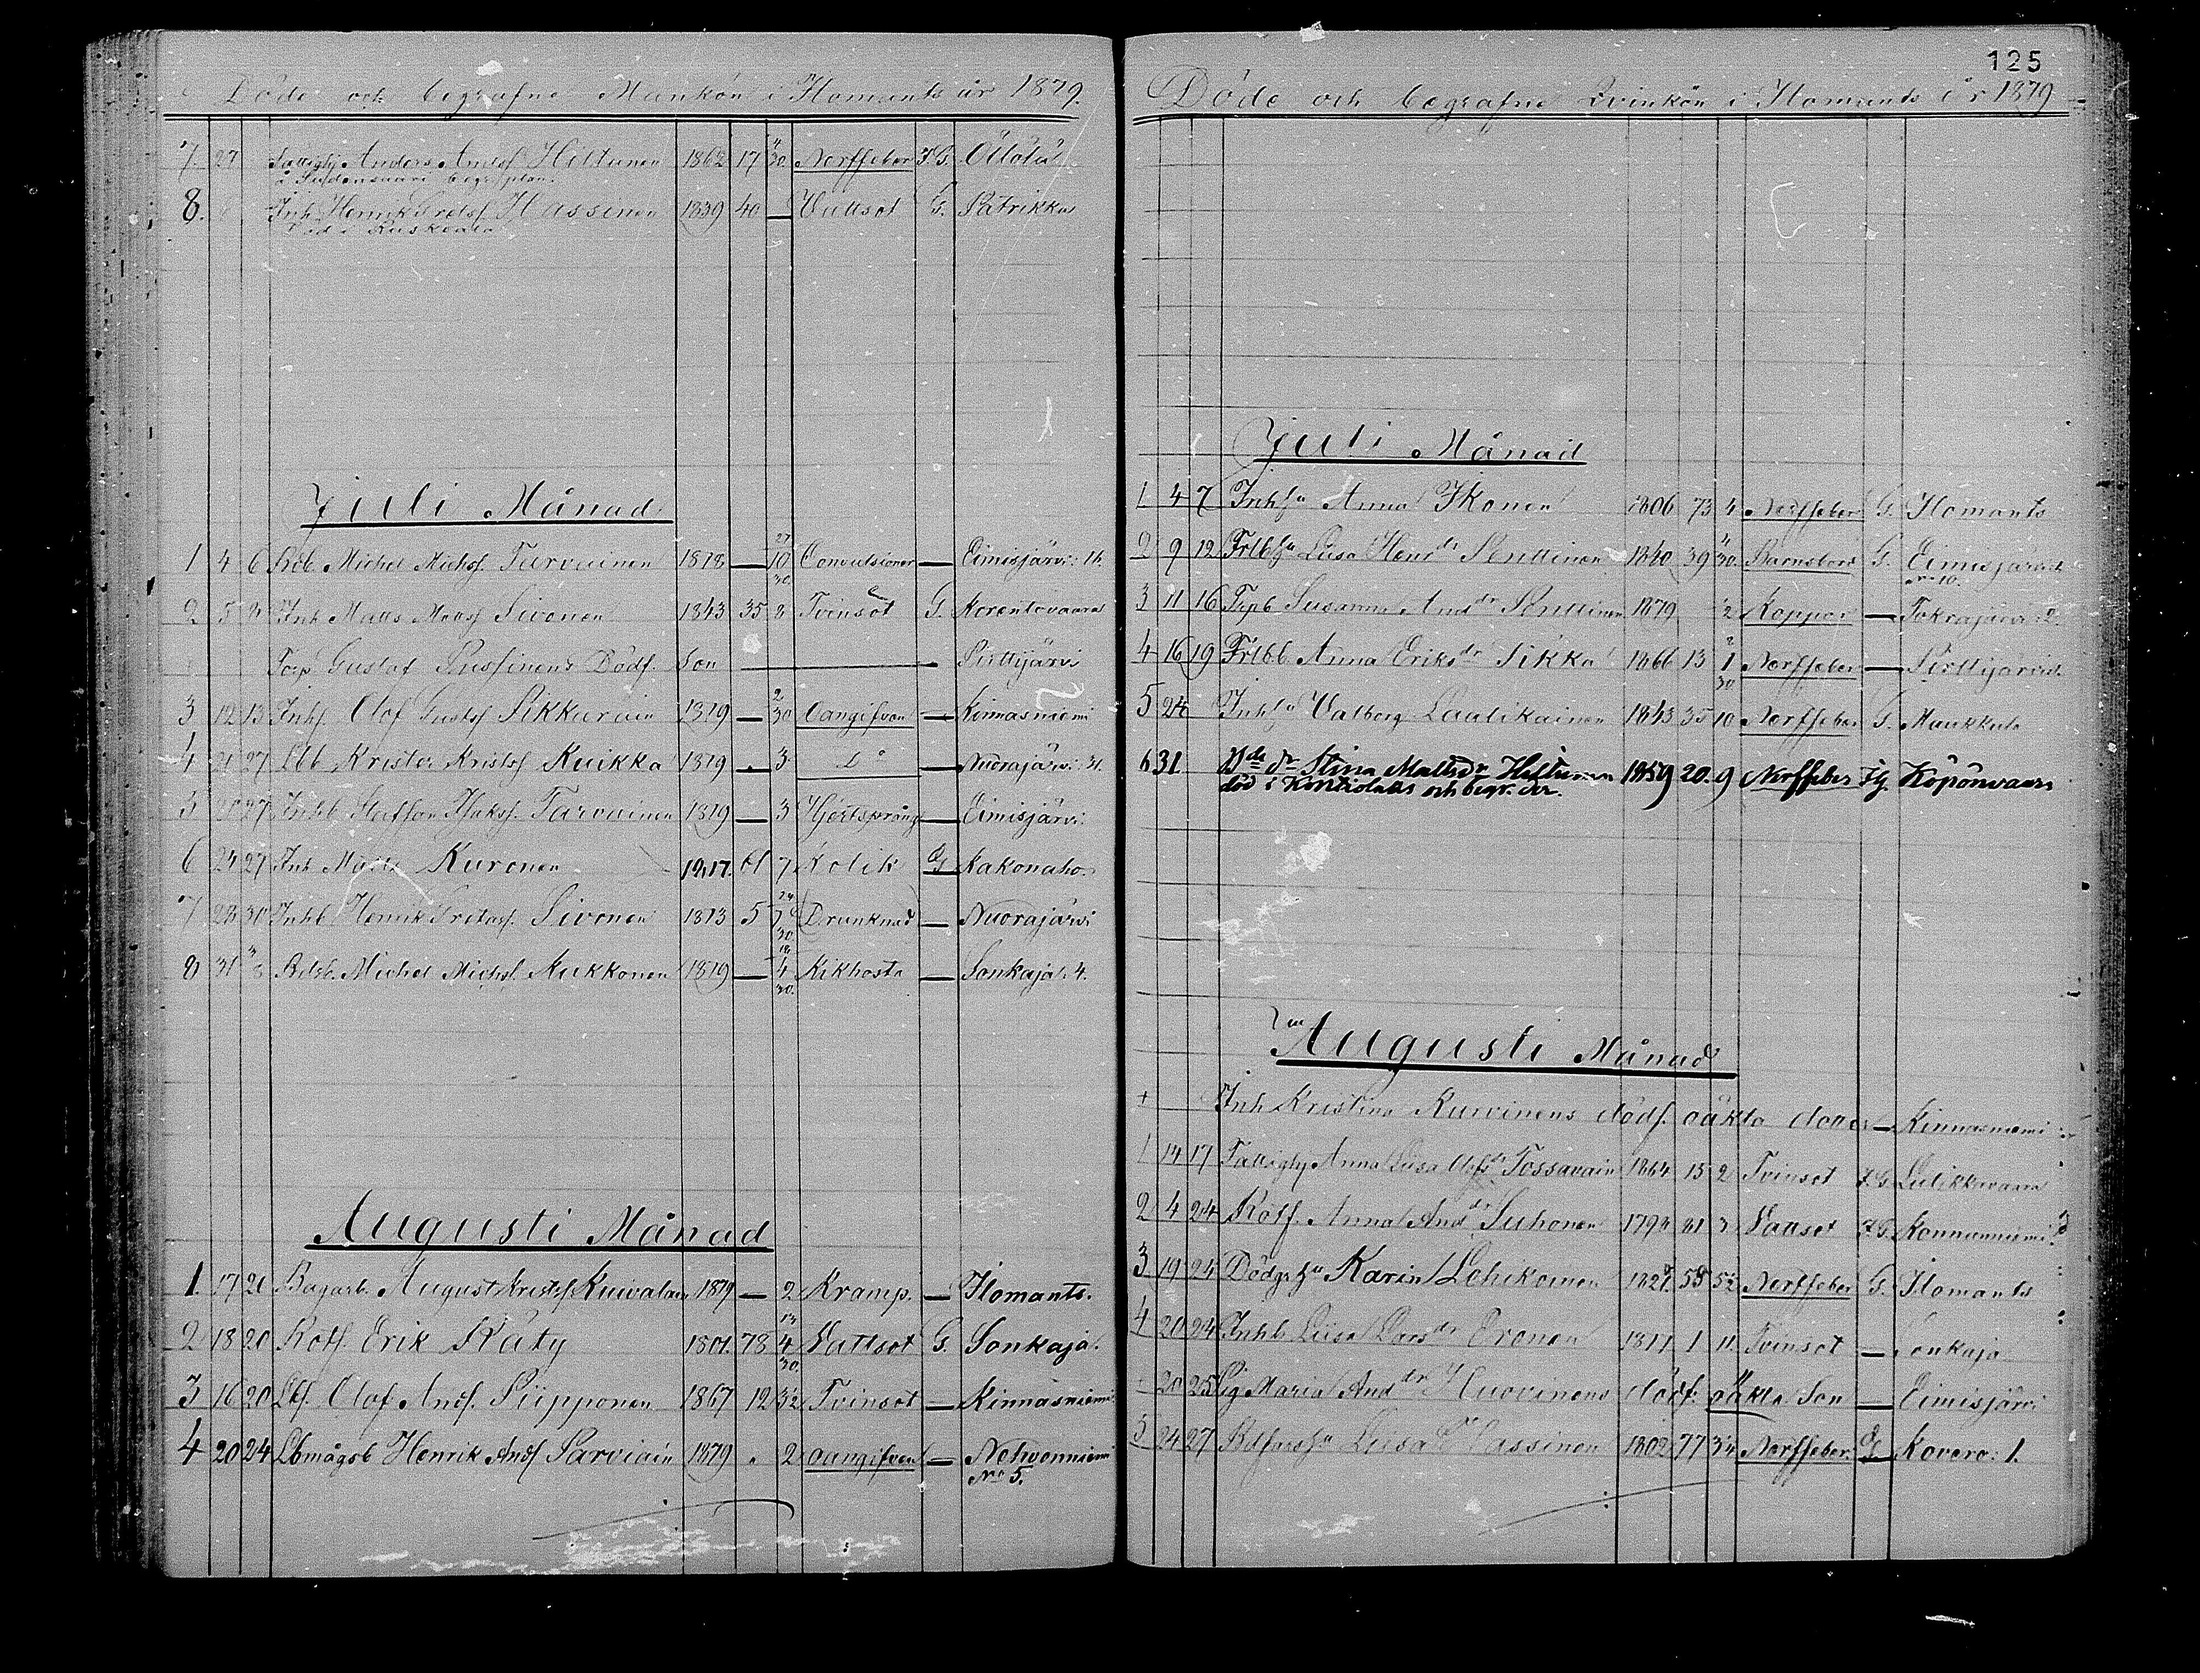 Döde och begrafne Mankön i Ilomants år 1879.
7. 27 Anders Andsf Hiltunen 1862 17 11/30 Nerffeber F.G.
begrfplan.
8. Inh. Henrik Hassinen 1839 40 — Vattsot G. Patrikka
Juli Månad
1 4 6 Michel Michsf. Tarvainen 1878 — 10 27/30 Convulsioner — Eimisjärvi: 16.
2 5 Inh Matts Sivonen 1843 35 8 Tvinsot G. Korentovaara
Torp Gustaf Pussinens Dödf. Son — Pirttijärvi
3 12 13 Inhs. Olof Gustsf Sikkurain 1879 — 2/30 Oangifven — Kinnasniemi
4 21 27 Lbb Krister Kristsf Kuikka 1879 . 3 Do — Nuorajärvi: 31.
5 20 27 Inhb Staffan Tarvainen 1879 — 3 Hjertsprång — Eimisjärvi.
6 24 27 Inh Matts Kuronen 1817. 61 7 Kolik G Kakonaho.
7 28 30 Inhb Henrik Sivonen 1873 5 7 24/30 Drunknad — Nuorajärvi
8 31 Michel Michsf. Kukkonen 1879 — 4 18/30 Kikhosta — Sonkaja: 4.
Augusti Månad
1. 17 20 August Kristsf. Kuivalain 1879 — 2 Kramp. — Ilomants.
2 18 20 Rotf. Erik Räty 1801. 78 4 13/30 Vattsot G. Sonkaja.
3 16 20 Lbf. Olof Andf. Piipponen 1867 12 3½ Tvinsot — Kinnasniemi
4 20 24 Lbmågsb Henrik Andf Parviain 1879 . 2 oangifven — Nehvonniemi
No 5.
125
Döde och begrafne Qvinkön i Ilomants år 1879
Juli Månad
1 4 7 Inhhu Anna Ikonen 1806 73 4 Nerffeber G. Ilomants
2 9 12 Liisa Henrdr Penttinen 1840 39 11/30. Barnsbörd G. Eimisjärvi
No 10.
3 11 16 Susanna Anddr Penttinen 1879 ½ Koppor — Tokrajärvi: 2.
4 16 19 Anna Eriksdr Sikka 1866 13 1 2/30 Nerffeber — Pirttijärvi
5 24 Inhhu Valborg Laatikainen 1843 35 10 Nerffeber G. Maukkula
6 31. Stina Mattsdr Hiltunen 1859 20. 9 Nerffeber Fg. Köpönvaara
död i Kontiolaks och begr. der.
Augusti Månad
+ Inh Kristina Kurvinens dödf. oäkta dotter — Kinnasniemi
1 14 17 Anna Liisa Tossavain 1864 15 2 Tvinsot F.G Lutikkvaara
2 4 24 Rotf. Anna Anddr Suhonen 81 3 Vattsot F.G Konnunniemi
3 19 24 Karin Lehikoinen 1821. 58 5½ Nerffeber G. Ilomants
4 20 24 Inhb Liisa Larsdr Oronen 1877 1 11. Tvinsot — Sonkaja
20 25 Maria Anddr Huovinens dödf. oäkta Son — Eimisjärvi
5 24 27 Liisa Hassinen 1802 77 3¼ Nerffeber G Kovero: 1.